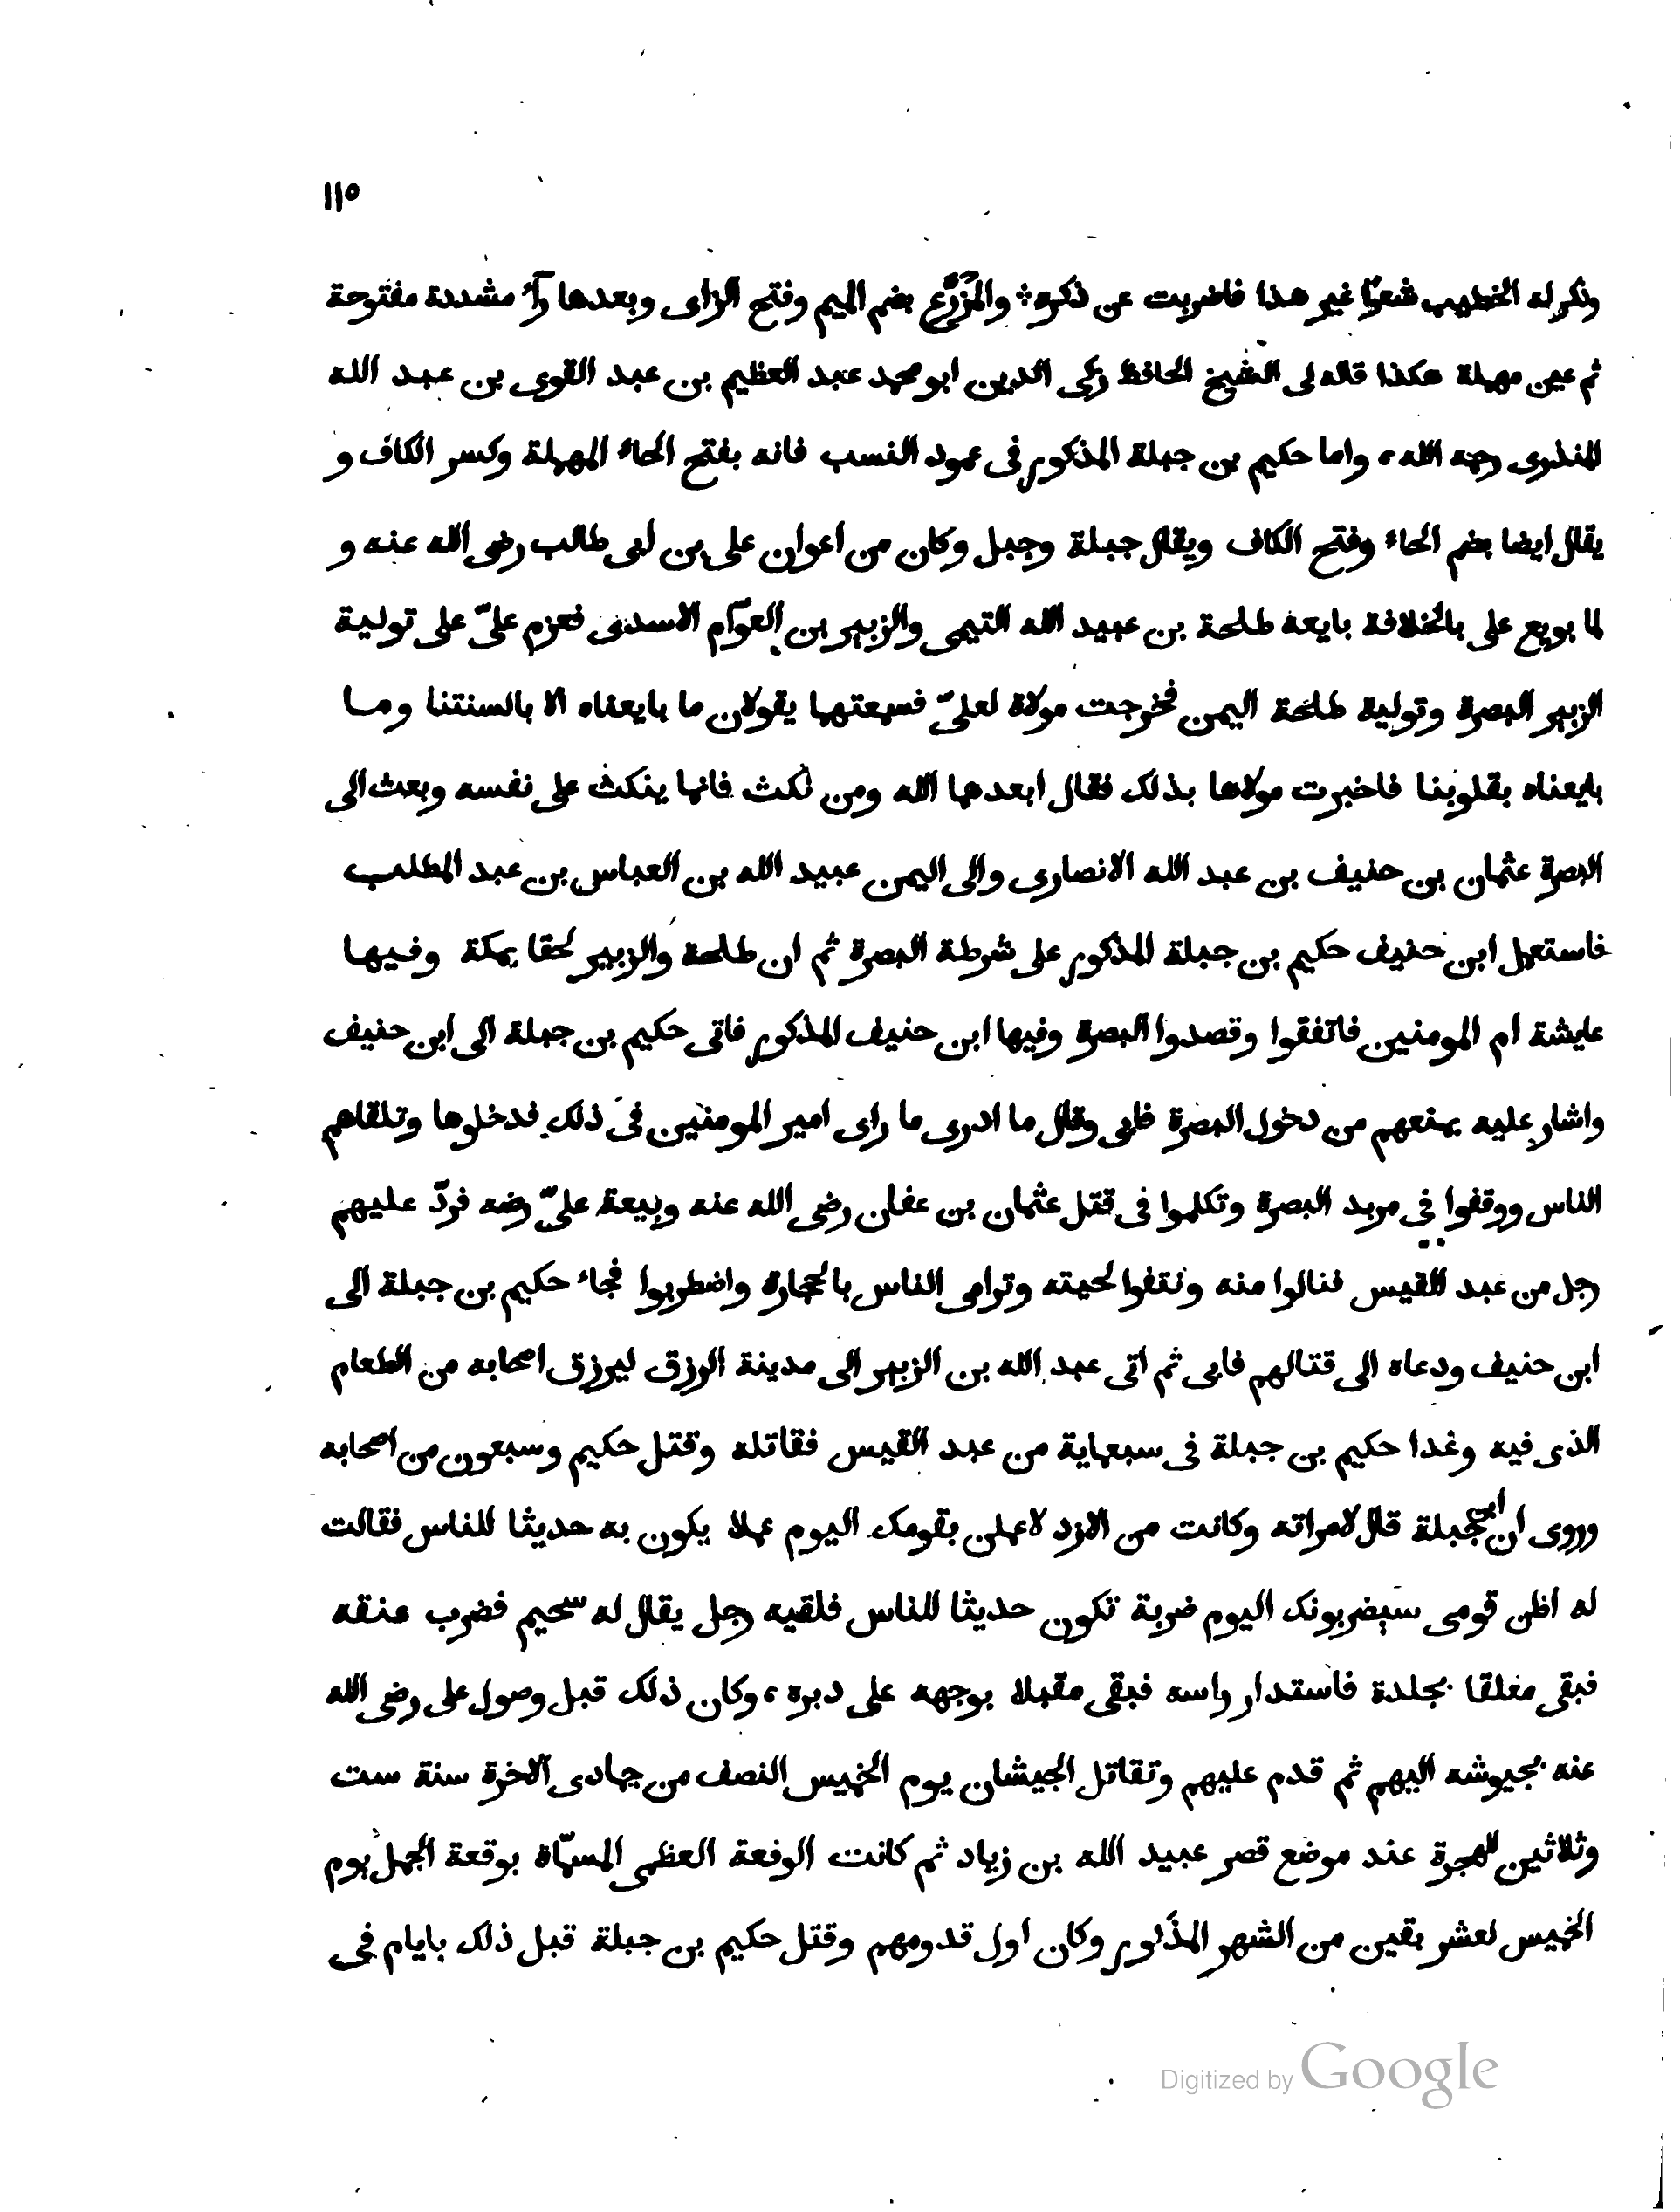 ١١٥
وذكر له الخطيب شعرًا غير هذا فاضربت عن ذكره ۞ والمُزَرَّع بضم الميم وفتح الزاى وبعدها رآء مشددة مفتوحة
ثم عين مهملة هكذا قاله لى الشيخ الحافظ زكى الدين ابو محمد عبد العظيم بن عبد القوى بن عبد الله
المنذرى رحمه الله، واما حكيم بن جبلة المذكور فى عمود النسب فانه بفتح الحاء المهملة وكسر الكاف و
يقال ايضا بضم الحاء وفتح الكاف ويقال جبلة وجبل وكان من اعوان على بن ابى طالب رضى الله عنه و
لما بويع على بالخلافة بايعه طلحة بن عبيد الله التيمى والزبير بن العوّام الاسدى فعزم علىّ على تولية
الزبير البصرة وتولية طلحة اليمن فخرجت مولاة لعلىّ فسمعتهما يقولان ما بايعناه الا بالسنتنا وما
بايعناه بقلوبنا فاخبرت مولاها بذلك فقال ابعدهما الله ومن نكث فانما ينكث على نفسه وبعث الى
البصرة عثمان بن حنيف بن عبد الله الانصارى والى اليمن عبيد الله بن العباس بن عبد المطلب
فاستعمل ابن حنيف حكيم بن جبلة المذكور على شرطة البصرة ثم ان طلحة والزبير لحقا بمكة وفيها
عايشة ام المومنين فاتفقوا وقصدوا البصرة وفيها ابن حنيف المذكور فاتى حكيم بن جبلة الى ابن حنيف
واشار عليه بمنعهم من دخول البصرة فابى وقال ما ادرى ما راى امير المومنين فى ذلك فدخلوها وتلقاهم
الناس ووقفوا فى مربد البصرة وتكلموا فى قتل عثمان بن عفان رضى الله عنه وبيعة علىّ رضه فردّ عليهم
رجل من عبد القيس فنالوا منه ونتفوا لحيته وترامى الناس بالحجارة واضطربوا فجاء حكيم بن جبلة الى
ابن حنيف ودعاه الى قتالهم فابى ثم اتى عبد الله بن الزبير الى مدينة الرزق ليرزق اصحابه من الطعام
الذى فيه وغدا حكيم بن جبلة فى سبعماية من عبد القيس فقاتله وقتل حكيم وسبعون من اصحابه
وروى ان ابن جبلة قال لامراته وكانت من الازد لاعملن بقومك اليوم عملا يكون به حديثا للناس فقالت
له اظن قومى سيضربونك اليوم ضربة تكون حديثا للناس فلقيه رجل يقال له سحيم فضرب عنقه
فبقى معلقا بجلدة فاستدار راسه فبقى مقبلا بوجهه على دبره، وكان ذلك قبل وصول على رضى الله
عنه بجيوشه اليهم ثم قدم عليهم وتقاتل الجيشان يوم الخميس النصف من جمادى الاخرة سنة ست
وثلاثين للهجرة عند موضع قصر عبيد الله بن زياد ثم كانت الوقعة العظمى المسمّاة بوقعة الجمل يوم
الخميس لعشر بقين من الشهر المذكور وكان اول قدومهم وقتل حكيم بن جبلة قبل ذلك بايام فى
Digitized by Google